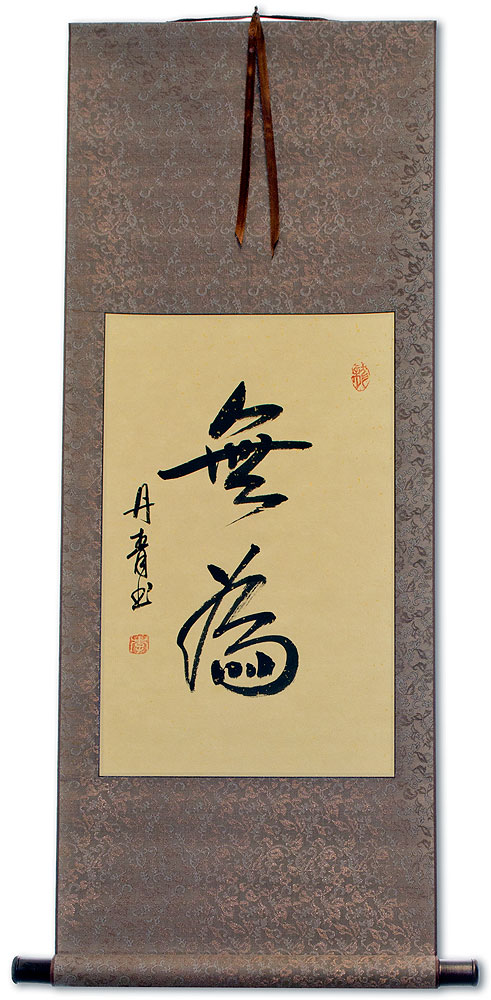 無為
丹青书